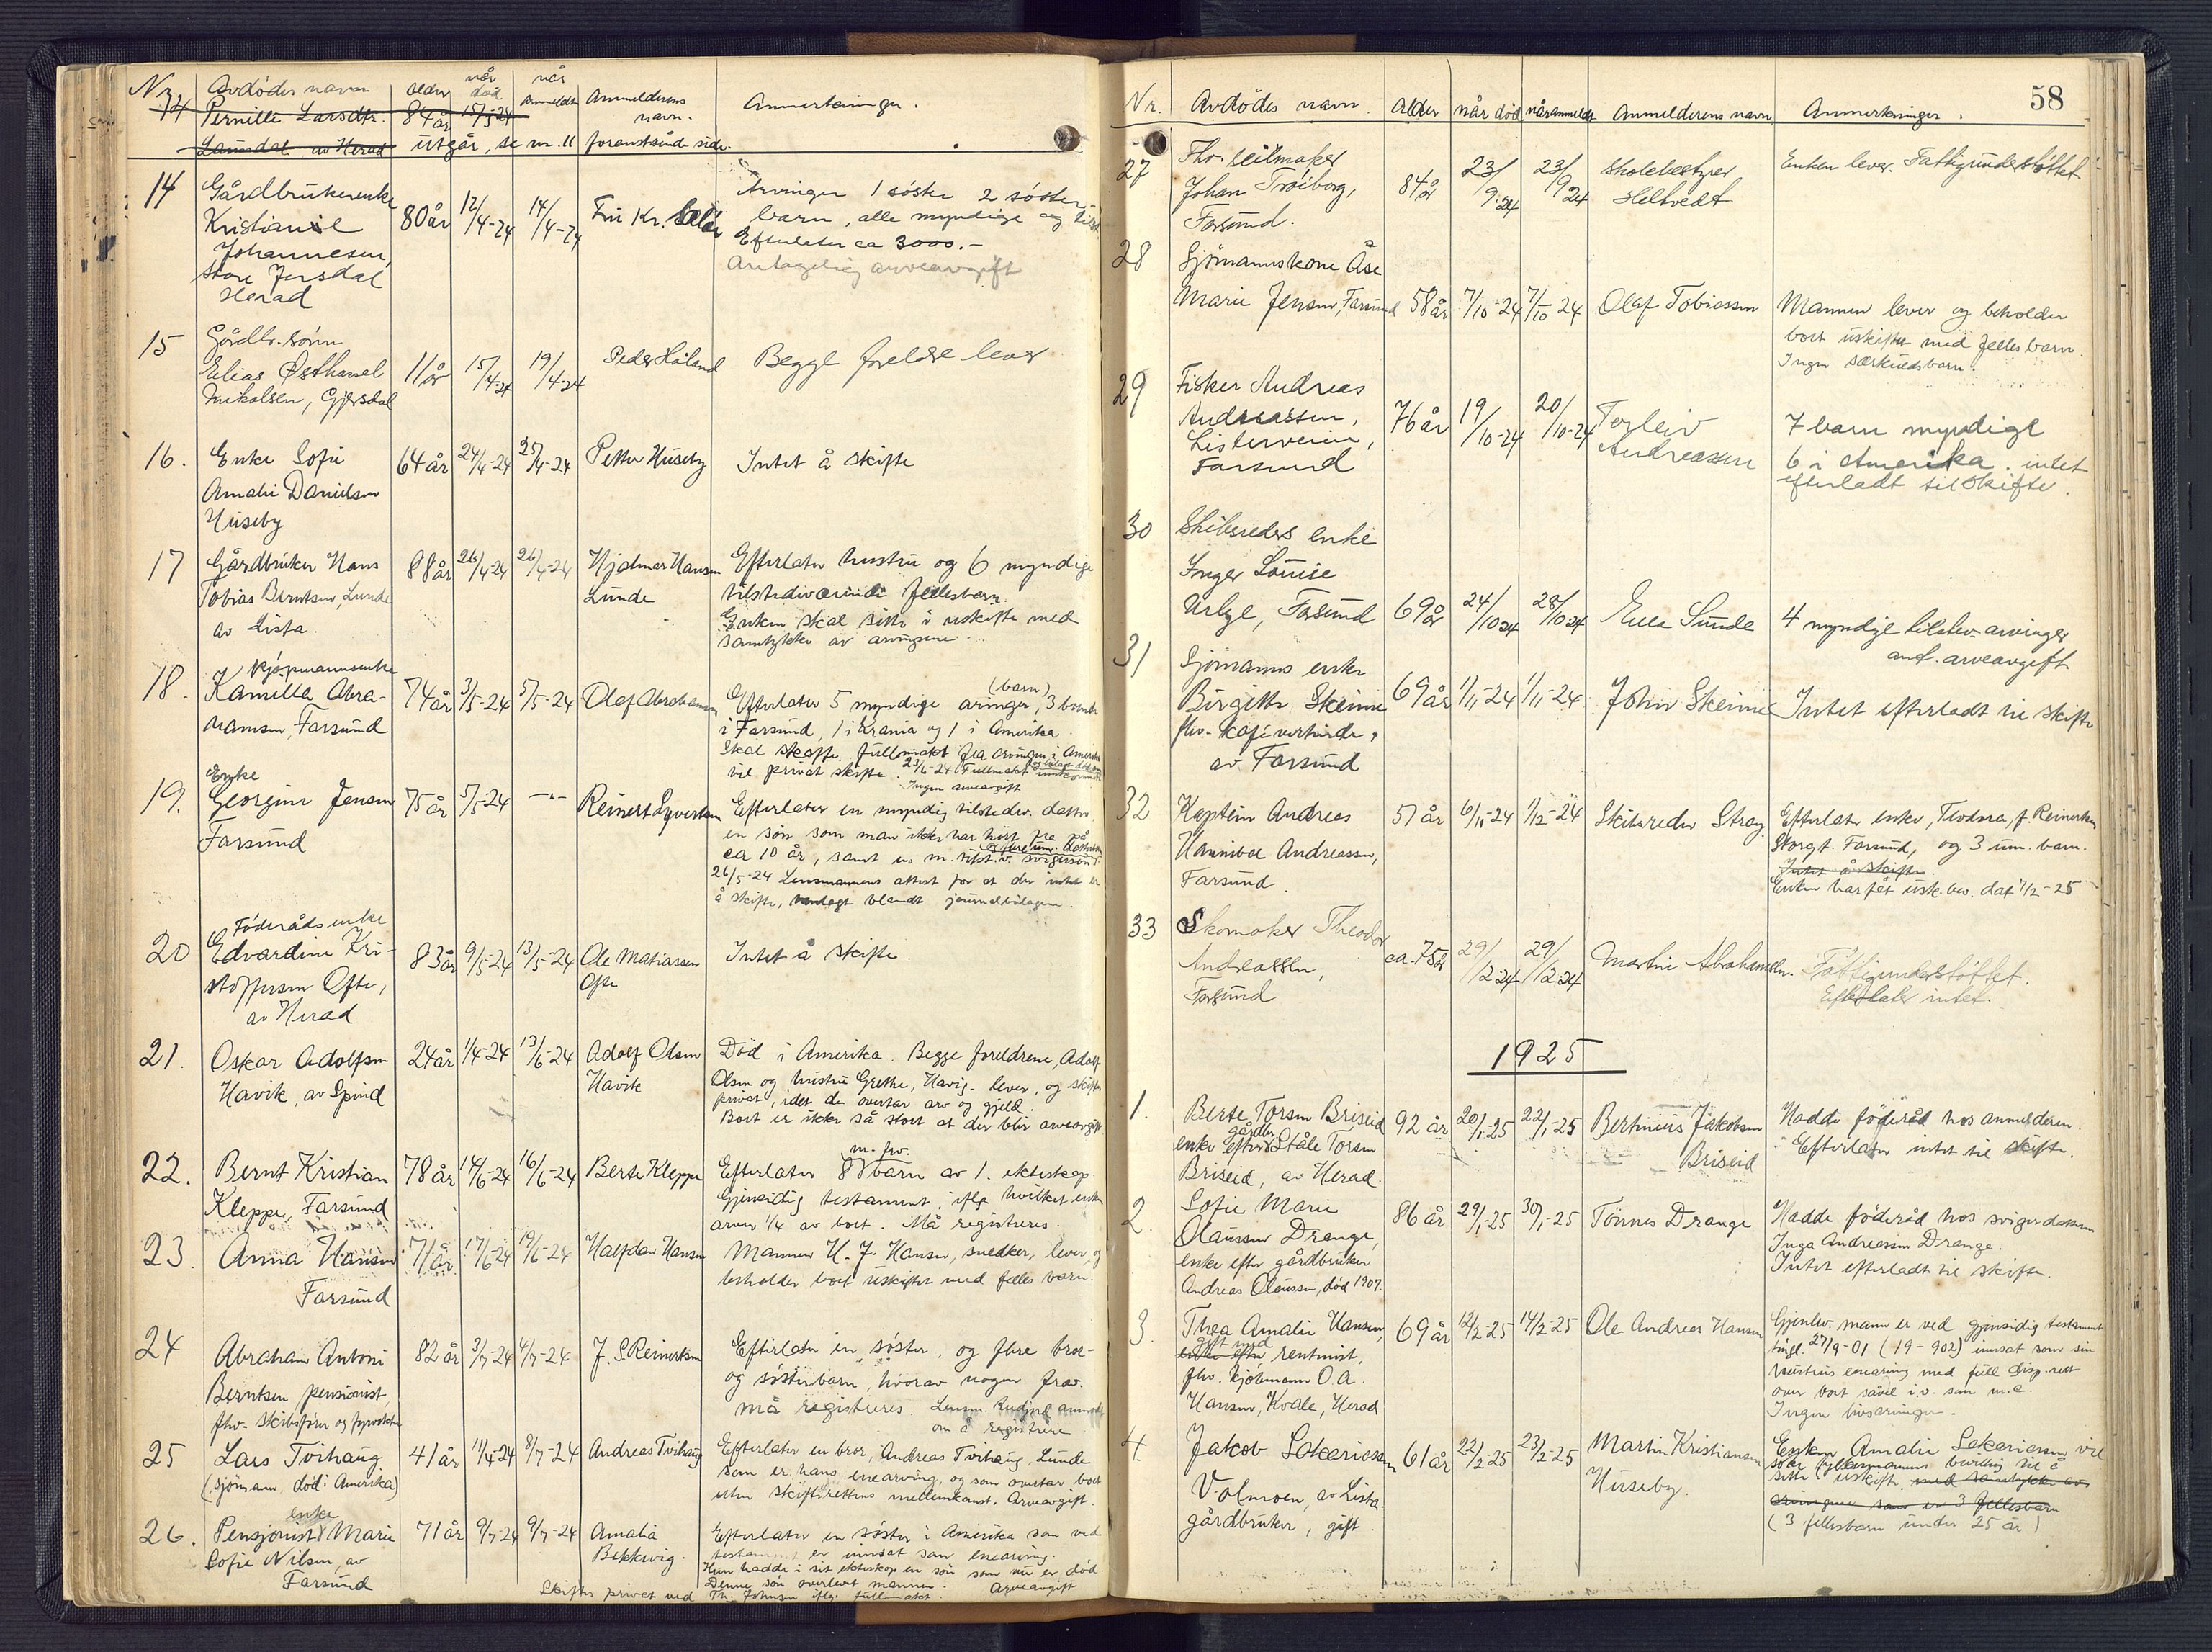 Nr. Avdødes navn alder når død når anmeldt Anmelderens navn. Anmerkninger.
14 Pernille Larsdtr. 84 år 15/3-24
Laumdal av Herad utgår, se nr. 11 foranstående side.
14 Gårdbrukerenke
Kristiane 80 år 12/4-24 14/4-24 Fru Kr.
Johannesen,
Store Jersdal
Herad
Arvinger 1 søster 2 søster-
barn, alle myndige og
Efterlater ca 3000.-
Antagelig arveavgift
15 Gårdbr. sønn
Elias Østhassel 11 år 15/4-24 19/4-24 Peder Høiland Begge foreldre lever
Mikalsen, Gjersdal
16. Enke Sofie 64 år 24/4-24 25/4-24 Petter Huseby Intet å skifte
Amalie Danielsen
Huseby
17 Gårdbruker Hans 88 år 26/4-24 26/4-24 Hjalmar Hansen
Tobias Berntsen, Lunde Lunde
av Lista.
Efterlater hustru og 6 myndige
tilstedeværende fellesbarn.
Enken skal sitte i uskifte med
samtykke av arvingene.
18. Kjøpmannsenke
Kamilla Abra- 74 år 3/5-24 5/5-24 Olaf Abrahamsen
hamsen, Farsund
Efterlater 5 myndige arvinger, (barn) 3 bosatt
i Farsund, 1 i Krania og 1 i Amerika.
Skal skaffe fullmakt fra arvingen i Amerika
vil privat skifte. 23/6-24 Fullmakt
Ingen arveavgift
19. Enke
Georgine Jensen 75 år 5/5-24 -"- Reinert Syvertsen
Farsund
Efterlater en myndig tilstedev. datter,
en sønn som man ikke har hørt fra på
ca 10 år, samt en m. tilst.v. svigersønn
26/5-24 Lensmannens attest for at der intet er
å skifte, vedlagt blandt journalbilagene.
20 Føderådsenke
Edvardine Kri- 83 år 9/5-24 13/5-24 Ole Matiassen Intet å skifte.
stoffersen Ofte, Ofte
av Herad
21. Oskar Adolfsen 24 år 1/4-24 13/6-24 Adolf Olsen
Havik, av Spind Havik
Død i Amerika. Begge foreldrene, Adolf
Olsen og hustru Grethe, Havig. lever, og skifter
privat, idet de overtar arv og gjeld.
Boet er ikke så stort at der blir arveavgift
22. Bernt Kristian 78 år 14/6-24 16/6-24 Berte Kleppe
Kleppe, Farsund
m. fv.
Efterlater 8 barn av 1. ekteskap.
Gjensidig testament, iflg. hvilket enken
arver 1/4 av boet. Må registreres.
23. Anna Hansen 71 år 17/6-24 19/6-24 Halfdan Hansen
Farsund
Mannen H. J. Hansen, snedker, lever, og
beholder boet uskiftet med felles barn.
24 Abraham Antoni 82 år 3/7-24 4/7-24 J. S. Reinertsen
Berntsen, pensionist,
fhv. skibsfører og fyrvokter
Efterlater en søster, og flere bror-
og søsterbarn, hvorav nogen frav.
må registreres. Lensm. anmodet
om å registrere
25 Lars Tvihaug 41 år 11/4-24 8/7-24 Andreas Tvihaug
(sjømann, død i Amerika)
Efterlater en bror, Andreas Tvihaug, Lunde
som er hans enearving, og som overtar boet
uten skifterettens mellemkomst. Arveavgift.
26. Pensjonist enke Marie 71 år 9/7-24 9/7-24 Amalia
Sofie Nilsen av Bekkvig.
Farsund
Efterlater en søster i Amerika som ved
testament er innsat som enearving.
Hun hadde i sit ekteskap en søn som nu er død
Denne søn overlevet mannen. Arveavgift
Skiftes privat ved Th. Johnsen iflg. fullmakt.
58
Nr. Avdødes navn alder når død når anmeldt Anmelderens navn Anmerkninger.
27 Fhv. seilmaker
Johan Trøiborg, 84 år 23/9-24 23/9 24 skolebestyrer
Farsund. Heltvedt
Enken lever. Fattigunderstøttet
28 Sjømannskone Åse
Marie Jensen, Farsund 58 år 7/10-24 7/10 24 Olaf Tobiassen
Mannen lever og beholder
boet uskiftet med felles barn.
Ingen særkulsbarn.
29 Fisker Andreas
Andreassen, 76 år 19/10-24 20/10-24 Torleiv
Listerveien, Andreassen
Farsund
7 barn myndige
6 i Amerika. intet
efterladt til skifte.
30 Skibsreders enke
Inger Louise
Urbye, Farsund 69 år 24/10 24 28/10 24 Sunde
4 myndige tilstev. arvinger
ant. arveavgift
31 Sjømanns enke
Birgitte Skeime 69 år 1/11-24 1/11-24 John Skeime Intet efterladt til skifte
fhv. kafévertinde,
av Farsund
32 Kaptein Andreas 57 år 6/11-24 1/12-24 Skibsreder Stray
Hannibal Andreassen,
Farsund.
Efterlater enke, Teodora, f. Reinertsen
Storgt. Farsund, og 3 um. barn.
Intet å skifte
Enken har fåt usk. bev. dat 7/2-25
33 Skomaker Theodor
Andreassen, ca. 75 år 29/12-24 29/12-24 Martin Abrahamsen.
Farsund
Fattigunderstøttet.
Efterlater intet.
1925
1. Berte Torsen Briseid 92 år 20/1-25 22/1-25 Bertinius Jakobsen
enke efter gårdbr. Ståle Torsen Briseid
Briseid, av Herad.
Hadde føderåd hos anmelderen.
Efterlater intet til skifte.
2. Sofie Marie 86 år 29/1-25 30/1-25 Tønnes Drange
Olaussen Drange,
enke efter gårdbruker
Andreas Olaussen, død 1907.
Hadde føderåd hos svigerdatteren
Inga Andreassen Drange.
Intet efterladt til skifte.
3. Thea Amalie Hansen, 69 år 12/2-25 14/2-25 Ole Andreas Hansen
enke efter gift med rentenist,
fhv. kjøbmann O. A.
Hansen, Kvale, Herad
Gjenlev. mann er ved gjensidig testament
tingl. 27/9-01 (19-902) innsat som sin
hustrus enearving med full disp. rett
over boet såvel i.v. som m.e.
Ingen livsarvinger.
4. Jakob Sakariassen 61 år 22/2-25 23/2-25 Martin Kristiansen
Volmoen, av Lista. Huseby.
gårdbruker, gift.
Enken Amalie Sakariassen vil
søke fylkesmannens bevilling til å
sitte i uskifte med samtykke av
arvingene som er 3 fellesbarn
(3 fellesbarn under 25 år)